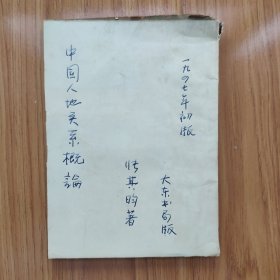 一九四七年初版
大东书局版
张其昀著
中国人地关系概論